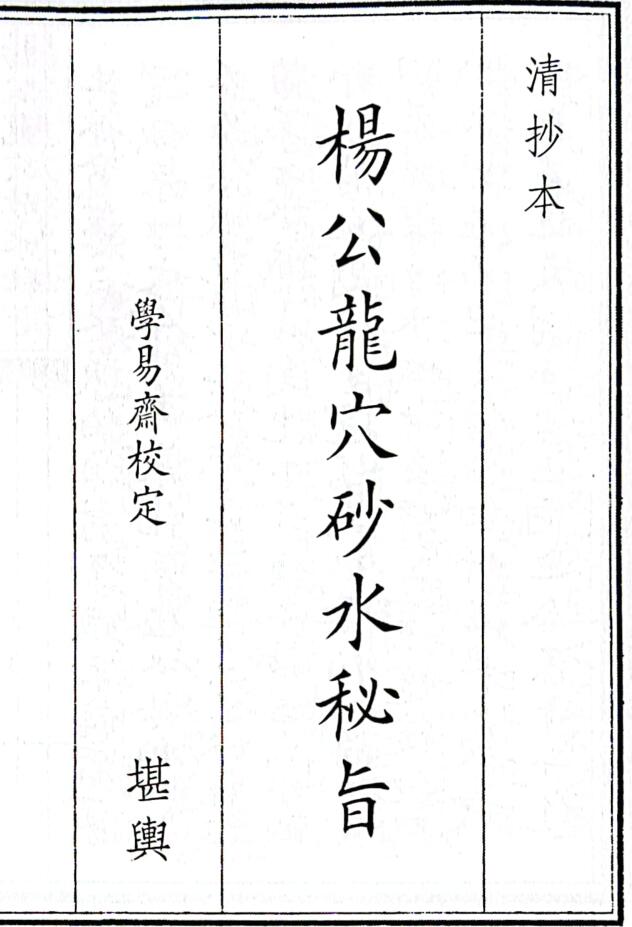 清抄本
楊公龍穴砂水秘旨
學易齋校定
堪輿